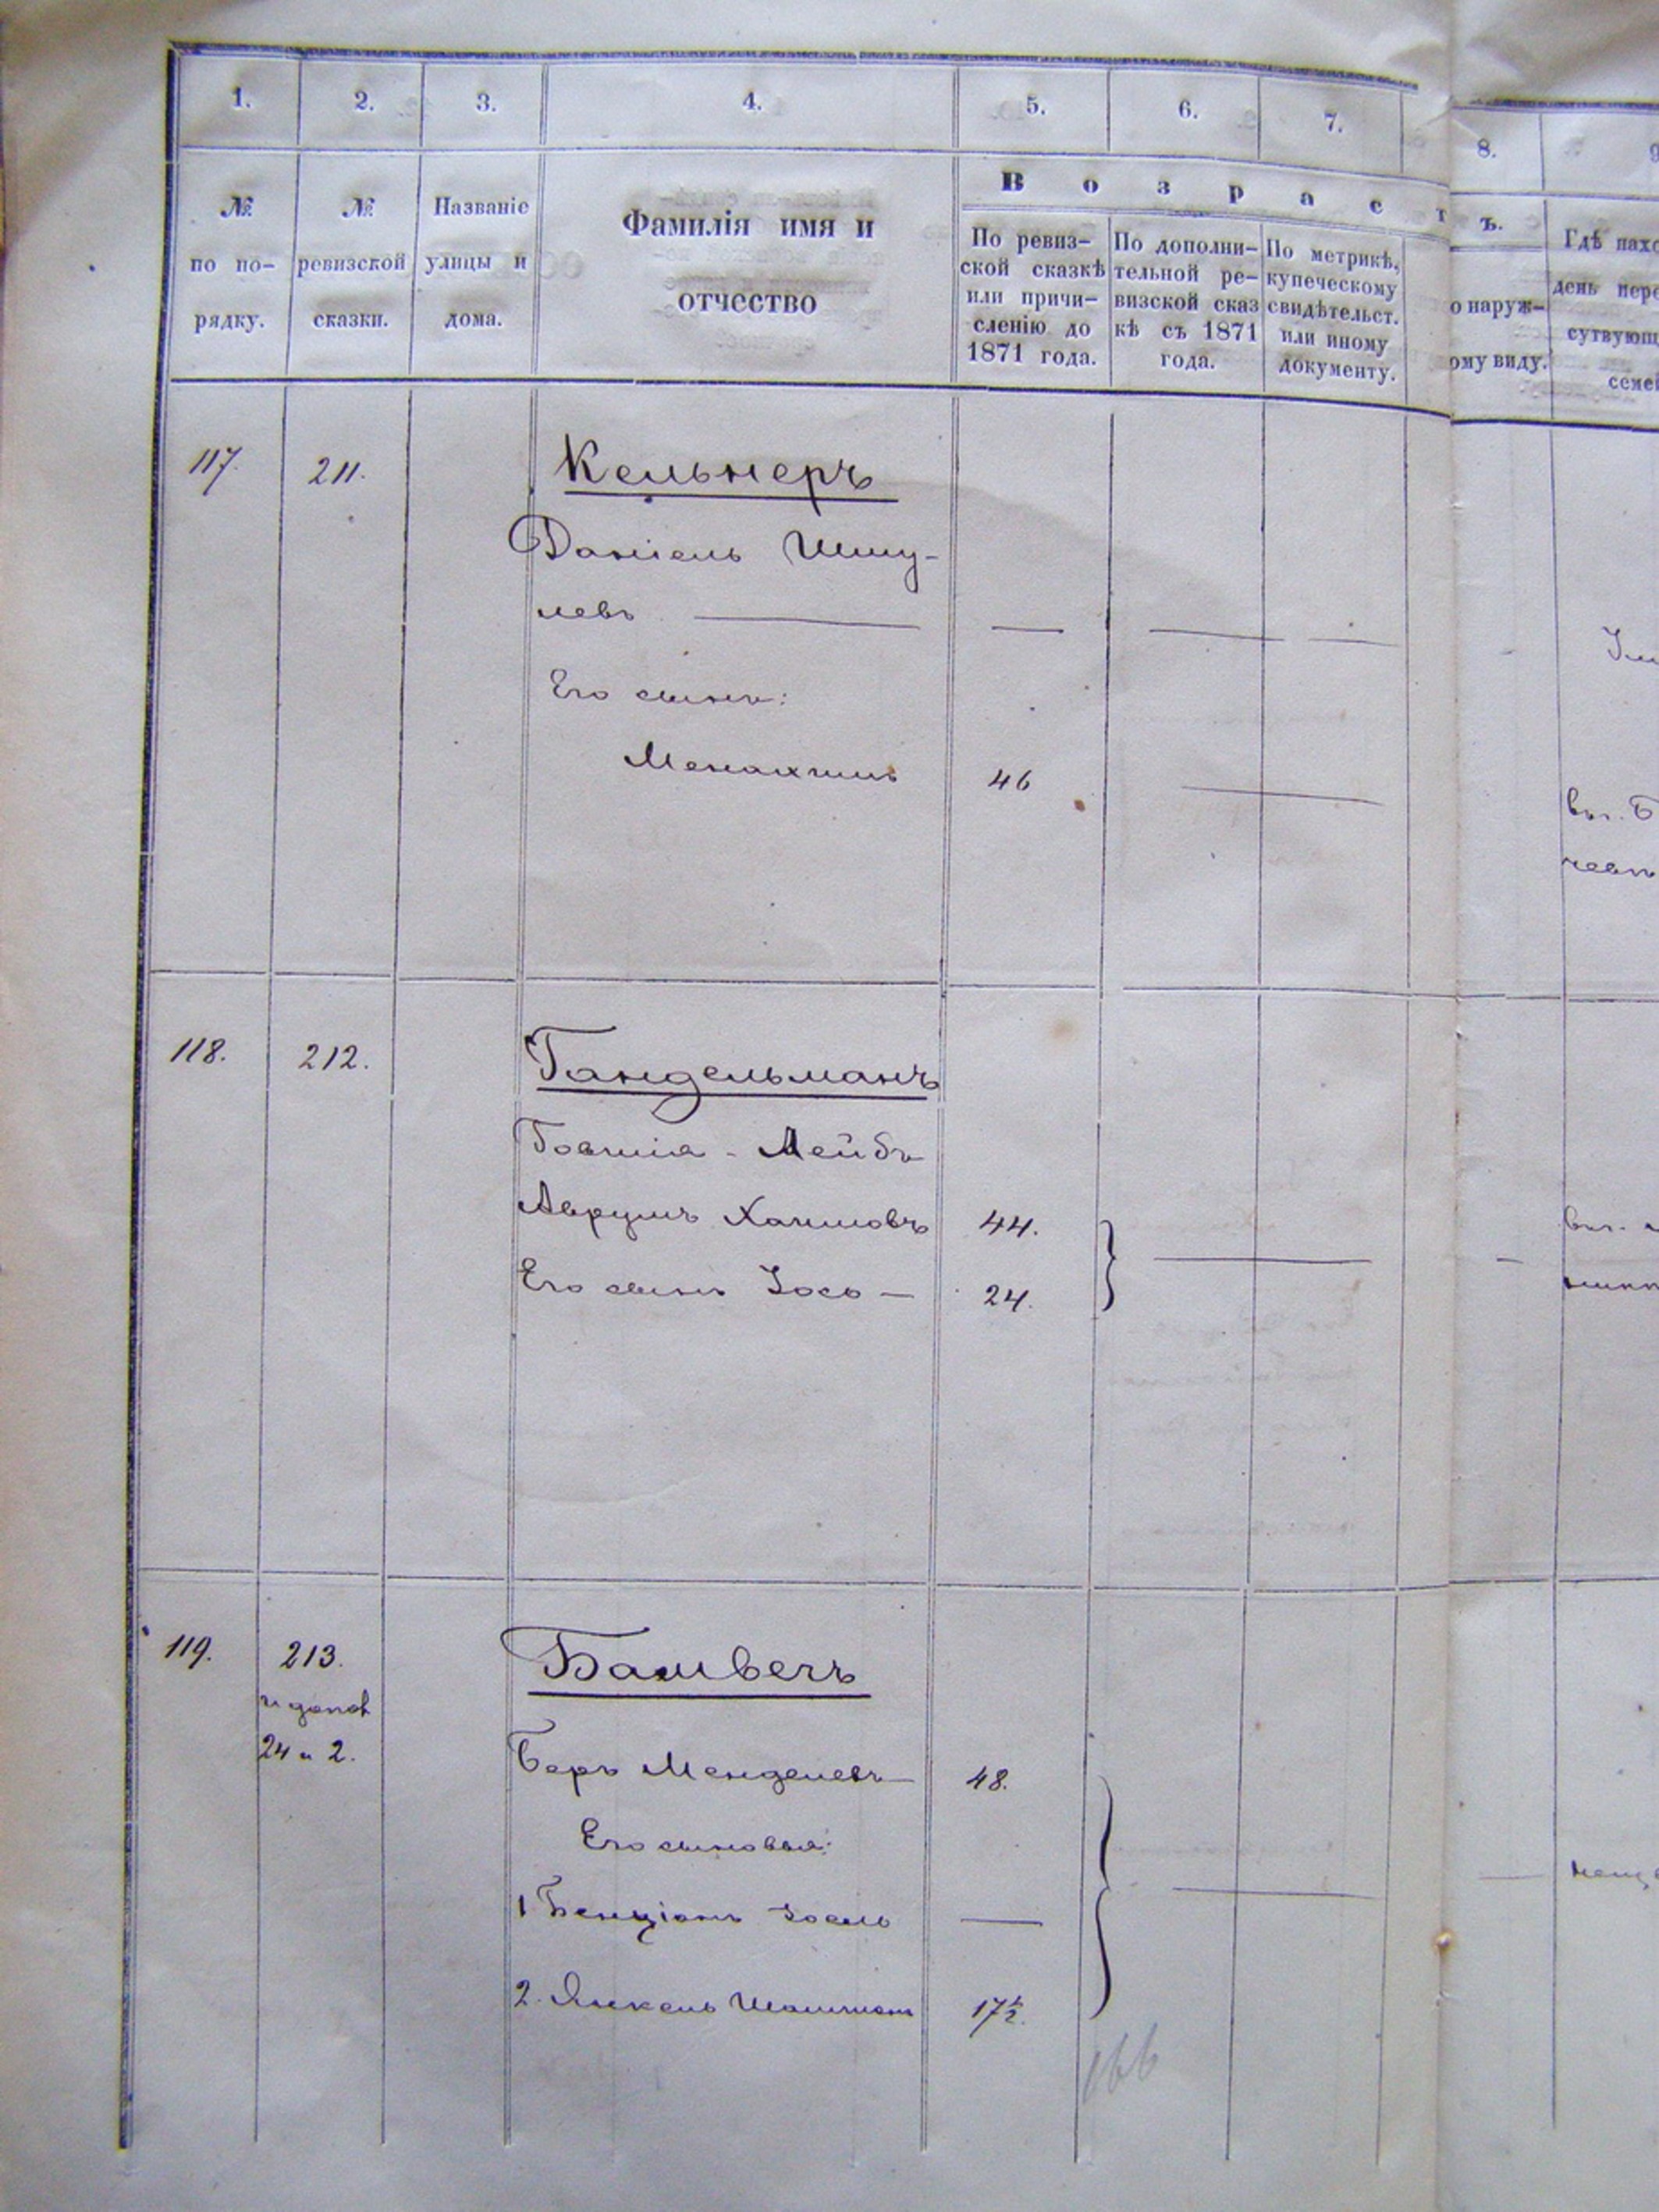 1. 2. 3. 4. 5. 6. 7. 8. 9
№ по по-рядку.
№ ревизской сказки.
Названіе улицы и дома.
Фамилія имя и
отчество
Возрастъ.
По ревиз-
ской сказкѣ
или причи-
сленію до
1871 года.
По дополни-
тельной ре-
визской сказ
кѣ съ 1871
года.
По метрикѣ,
купеческому
свидѣтельст.
или иному
документу.
о наруж-
ому виду.
Гдѣ нахо
день пере
сутвующ
семей
117. 211. Кельнеръ
Даніель Шму-
левъ
Его сынъ:
Менахимъ 46
118. 212. Гандельманъ
Говшія - Лейбъ
Аврумъ Хаимовъ 44.
Его сынъ Іось 24.
119. 213. Башвечъ
и допол
24 и 2.
Беръ Менделевъ 48.
Его сыновья:
1 Бенціонъ Іосель
2. Янкель 17½.
166